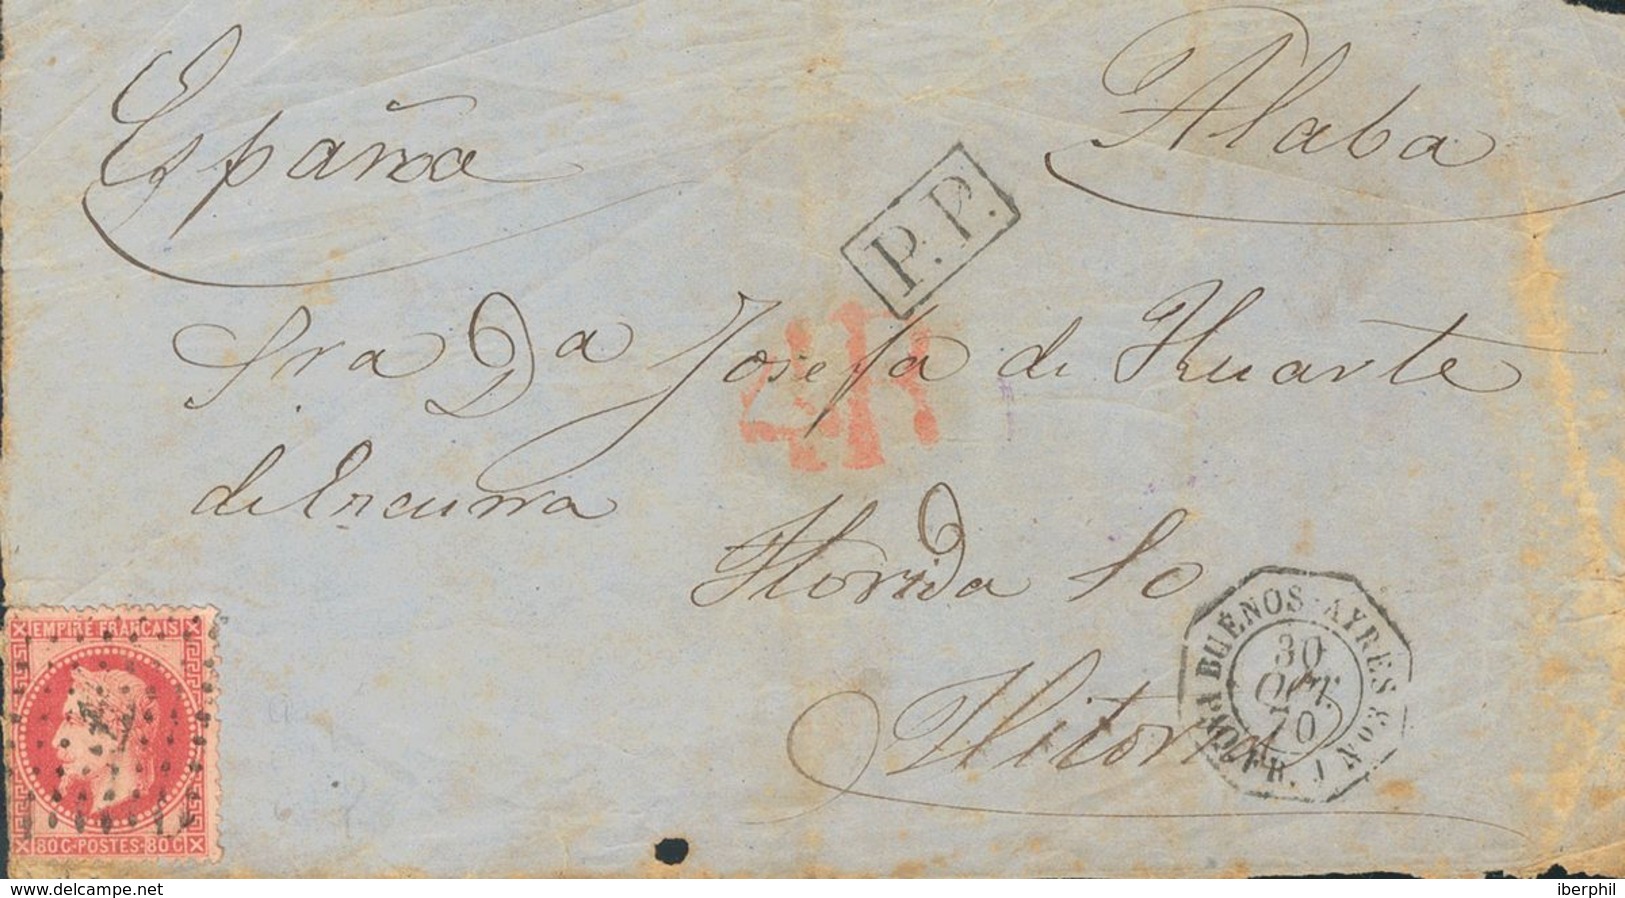 España
Alaba
P.P.
4R
Sra Da Josefa de Huarte
de Encurra
Florida 10
Vitoria
BUENOS-AYRES
30
OCT.
70
PAQ. FR. J No 3
EMPIRE FRANÇAIS
80C-POSTES-80C
www.delcampe.net
iberphil